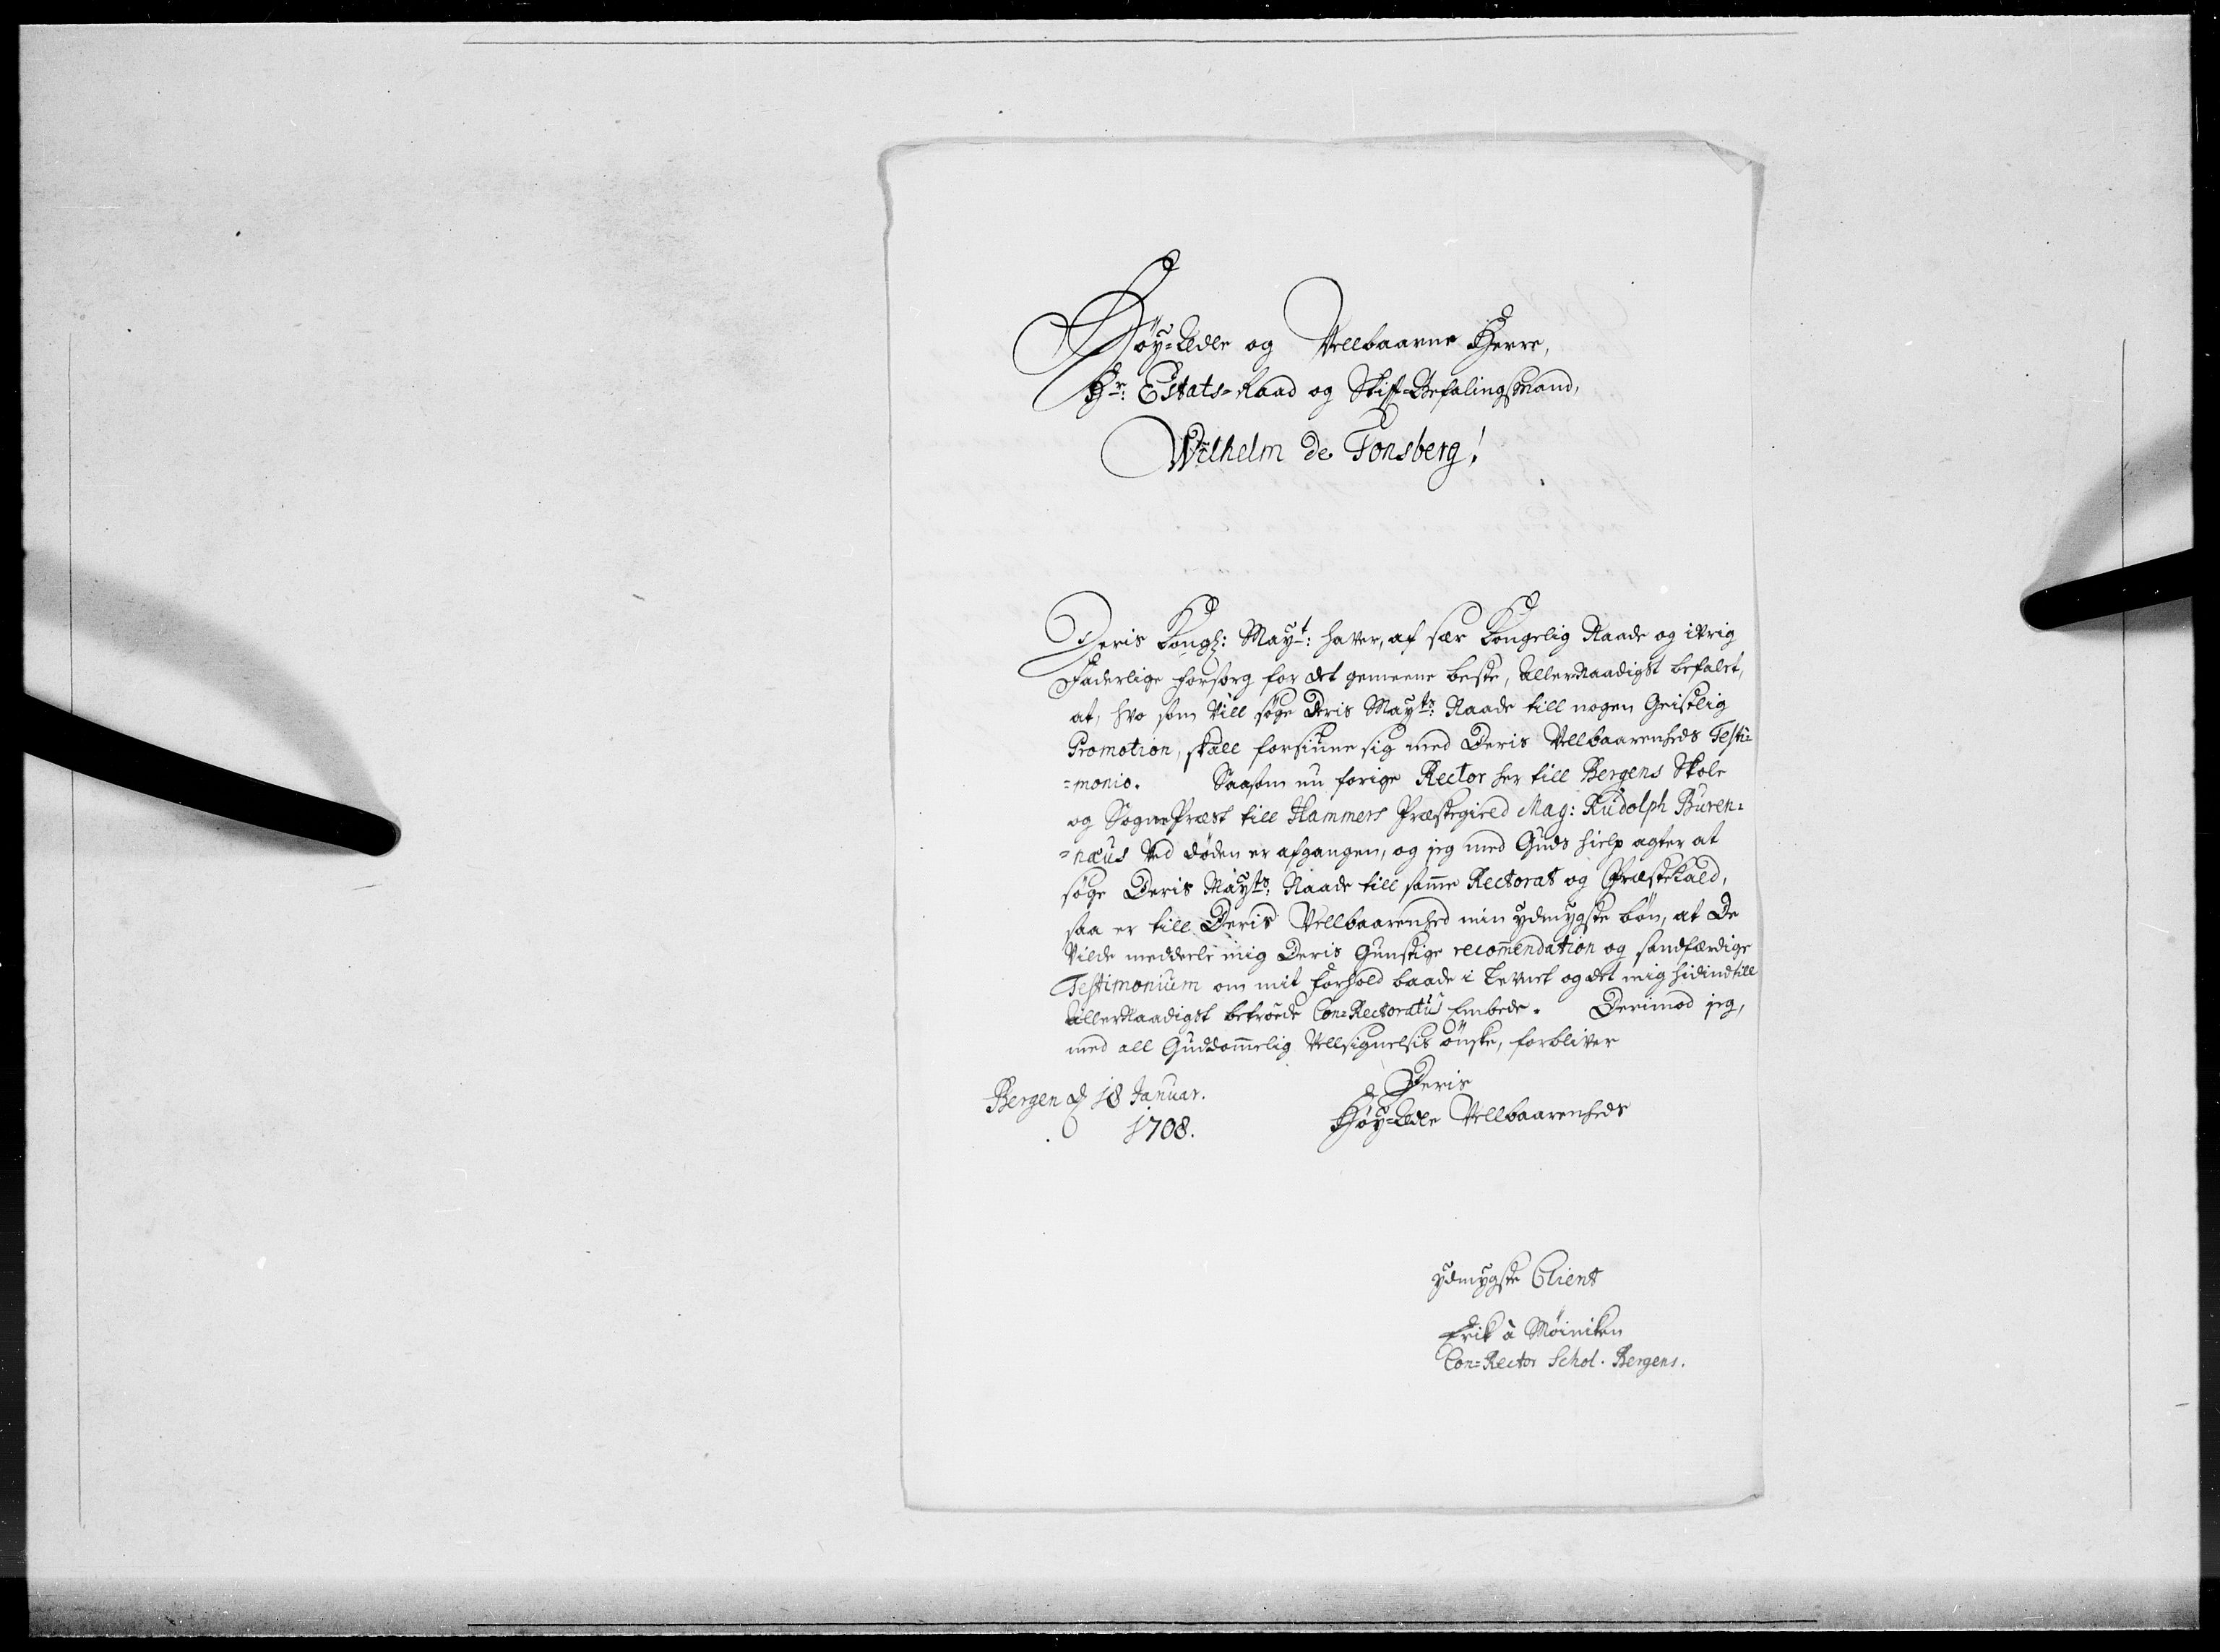 Høy-Edle og Vellbaarne Herre,
Hr: Estats-Raad og Stift-Befalingsmand,
Wilhelm de Tonsberg!
Deris Kongl: Mayt: haver, af sær Kongelig Naade og ivrig
Faderlige forsorg for det gemeene beste, allernaadigst befalet,
at, hvo som vill søge Deris Mayts: Naade till nogen Geistlig
Promotion, skall forsiune sig med Deris Vellbaarenheds Testi-
=monio. Saasom nu forige Rector her till Bergens Skole
og SognePræst till Hammers Præstegield Mag: Rudolph Buren=
=næus ved døden er afgangen, og jeg med Guds hielp agter at
søge Deris Mayts: Naade till samme Rectorat og Præstekald,
saa er till Deris Vellbaarenhed min ydmygste bøn, at De
vilde meddeele mig Deris Gunstige recommendation og sandfærdige
Testimonium om mit forhold baade i Levnet og det mig hidindtill
allernaadigst betroede Con-Rectoratus Embede. Derimod jeg,
med all Guddommelig Vellsignelsis ønske, forbliver
Deris
Bergen d 18 Januar.
Høy-Edle Vellbaarenheds
1708.
ydmygste Client
Erik à Møiniken
Con=Rector Schol. Bergens.